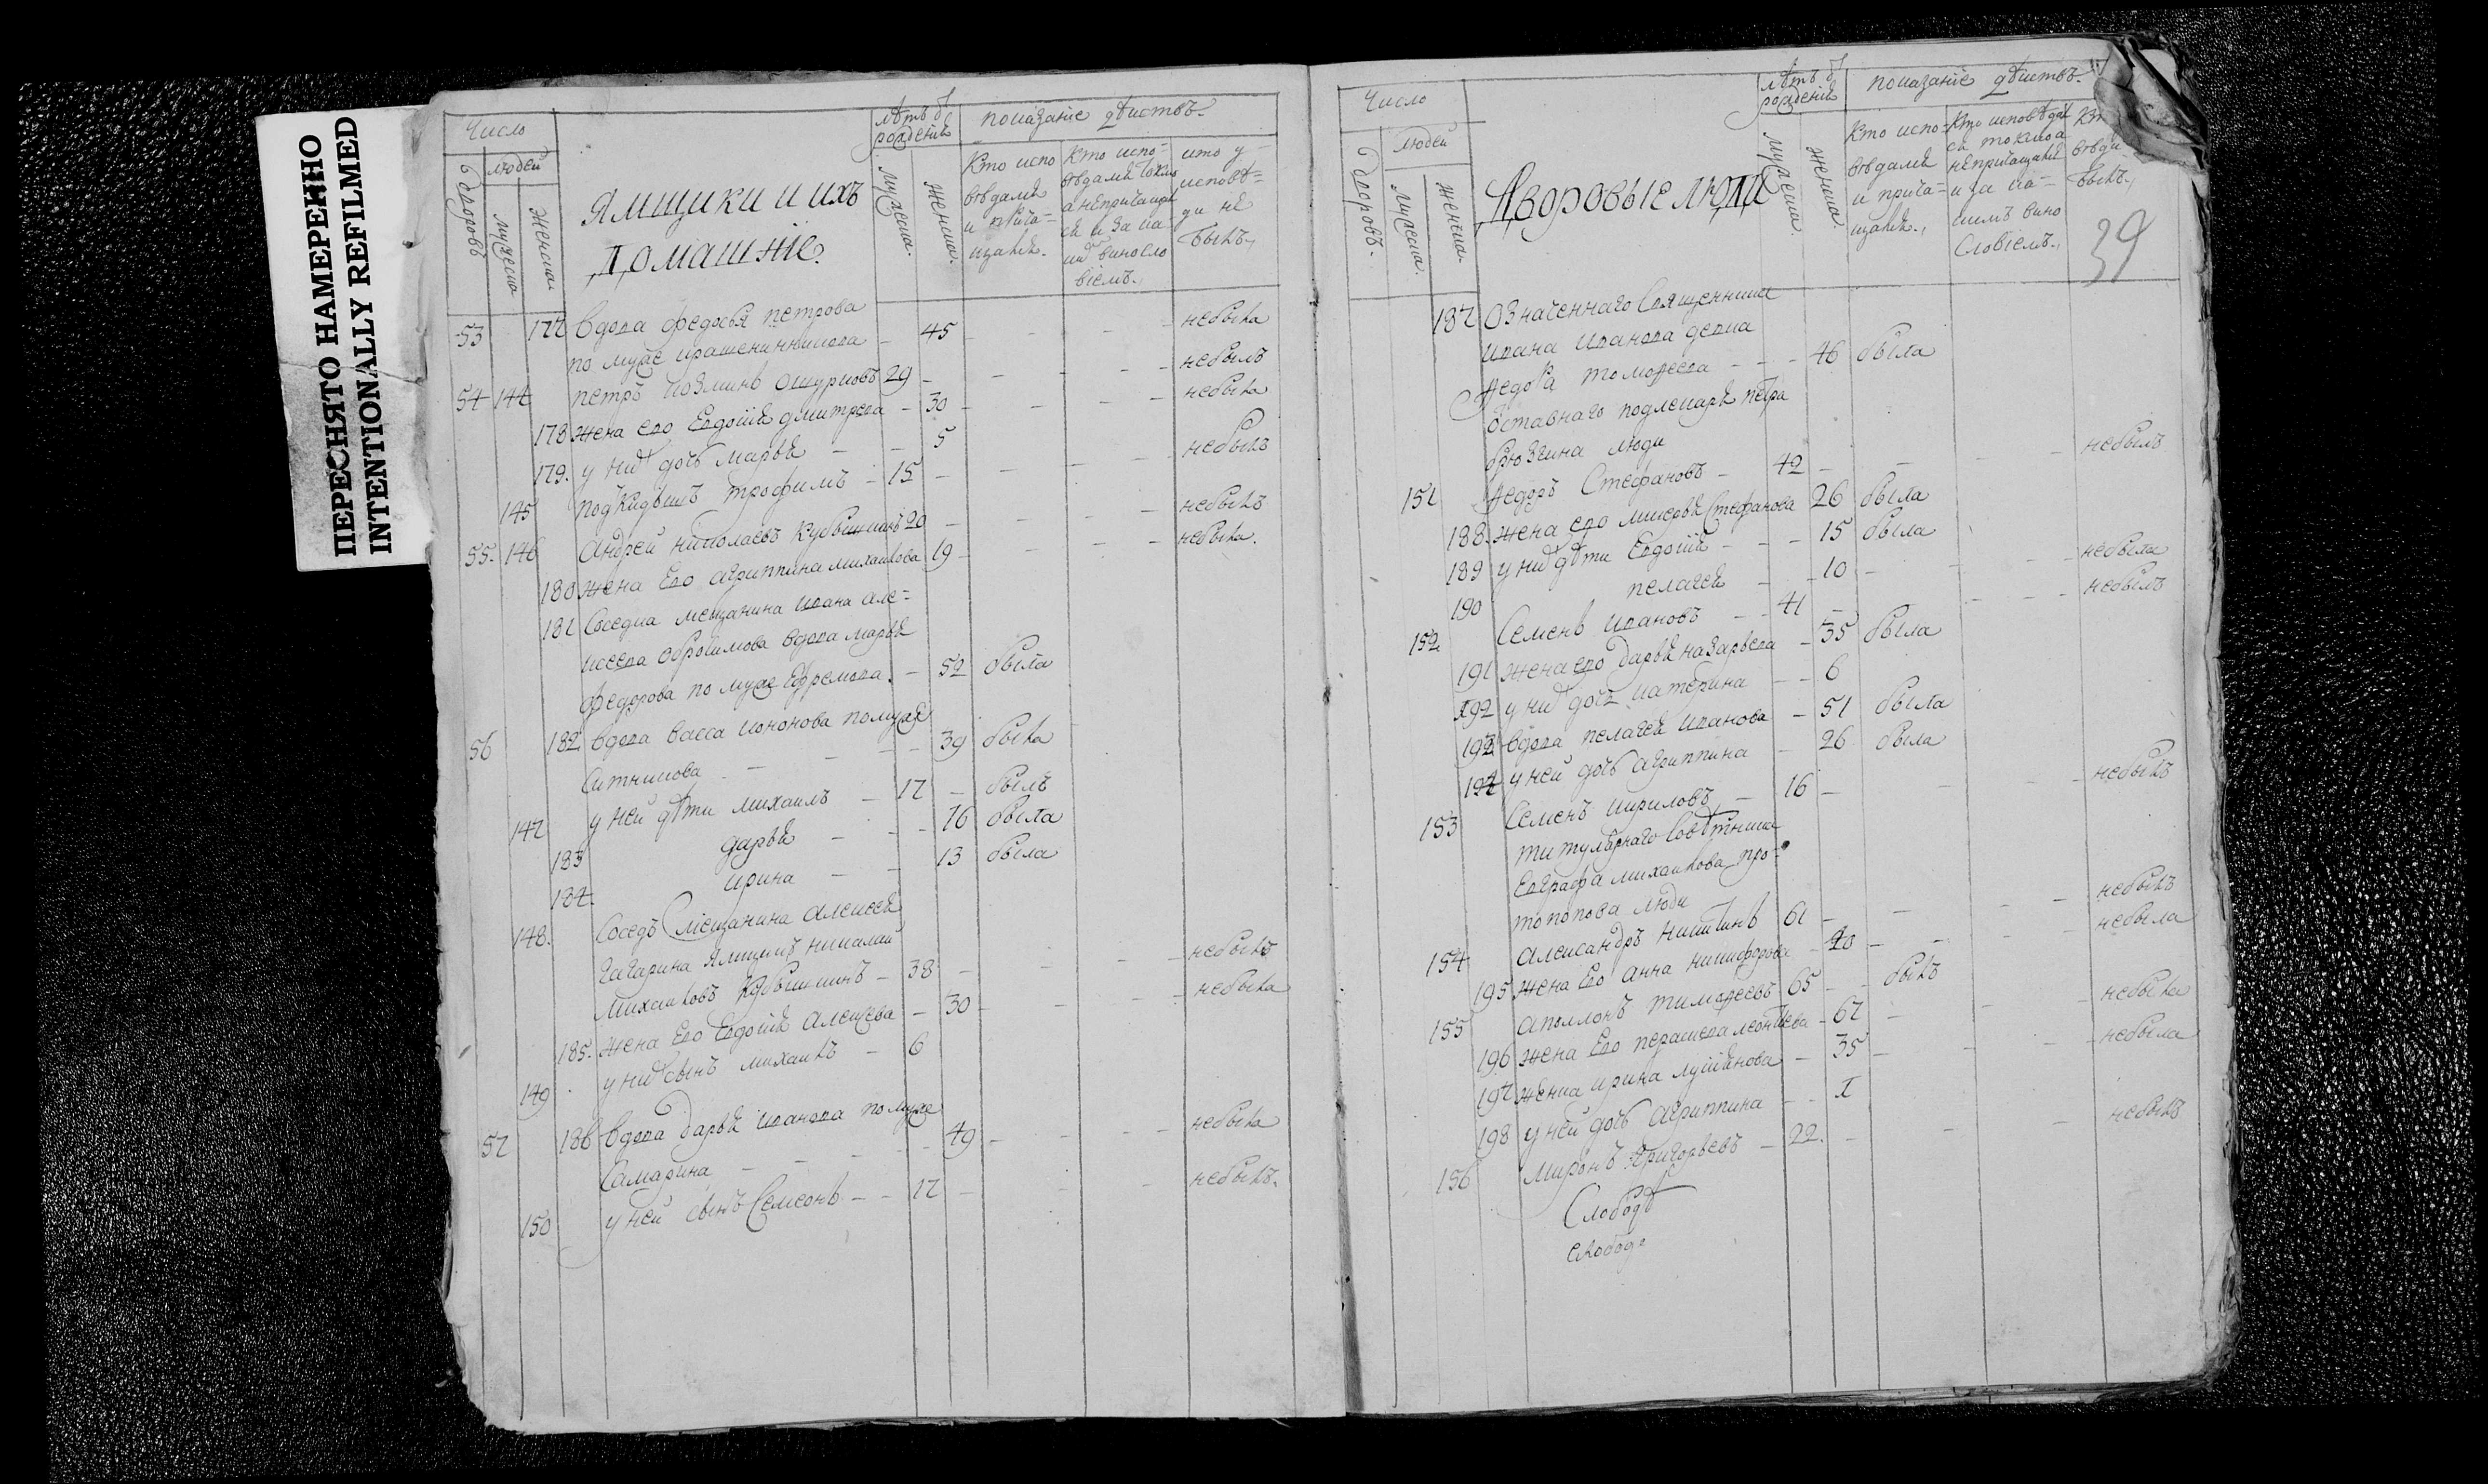 ПЕРЕСНЯТО НАМЕРЕННО
INTENTIONALLY REFILMED
Число
людей
дворовъ
мужеска
женска
Ямщики и ихъ
домашніе.
лѣтъ б
рожденія
мужеска.
женска.
показаніе дѣиствъ.
Кто испо
вѣдался
и прича=
щался.
Кто испо=
вѣдался токмо
а непричащал
ся и за ка
ким виносло
віемъ.
кто у
исповѣ=
ди не
былъ.
53 177 вдова федосья петрова
по муже крашенинникова - 45 - - - небыла
54 144 петръ козминъ ошурковъ 29 - - - небылъ
178 жена ево Евдокія дмитрева - 30 - - - небыла
179. у них дочь марья - - 5
145 подкидышъ трофимъ - 15 - - - небылъ
55. 146 Андрей николаевъ Кубышкинъ 20 - - - небылъ
180 жена Ево агриппина михаилова 19 - - - небыла.
181 Соседка мещанина ивана але=
ксеева обросимова вдова марья
федорова по муже Ефремова. - 52 была
56 182. вдова васса кононова помуже
Ситникова - - - 39 была
147 у неи дѣти михаилъ - 17 - былъ
183 дарья - - 16 была
184. ирина - - 13 была
148. Соседъ мещанина алексея
гагарина ямщикъ николаи
михаиловъ Кубышкинъ - 38 - - - небылъ
185. жена Ево Евдокія алексеева - 30 - - - небыла
149 у них сынъ михаилъ - 6
57 186 вдова дарья иванова по муже
Самарина - - - 49 - - - небыла
150 у неи сынъ Семеонъ - - 17 - - - небылъ.
Число
людеи
дворовъ.
мужеска.
женска.
Дворовые люди
лѣтъ б
рожденія
мужеска.
женска.
показаніе дѣиствъ.
Кто испо=
вѣдался
и прича=
щался.
Кто исповѣдал
ся токмо а
непричащался
и за ка=
кимъ вино
словіемъ.
былъ.
39
187 Означеннаго Священника
ивана иванова девка
Федора - - - 46 была
Отставнаго подлекаря петра
брюзгина люди
151 Федоръ Стефановъ - 42 - - - небылъ
188. жена ево Стефанова 26 была
189 у них дѣти Евдокія - - - 15 была
190 пелагея - - 10 - - - небыла
152 Семенъ ивановъ - - 41 - - - небылъ
191 жена ево дарья назарьева - 35 была
192 у них дочь катерина - - 6
193 вдова пелагея иванова - 51 была
194 у неи дочь агриппина - 26 была
153 Семенъ кириловъ - 16 - - - небылъ
титулярнаго Совѣтника
Евграфа михаилова про=
топопова люди
154 александръ никитинъ 61 - - - небылъ
195 жена Ево анна никифорова - 40 - - - небыла
155 аполлонъ тимофеевъ 65 - - былъ
196 жена Ево параскева леонтиева - 67 - - небыла
197 женка ирина лукиянова - 35 - - - небыла
198 у неи дочь агриппина - - 1
156 миронъ Григорьевъ - 22. - - - небылъ
Слобод
слобод